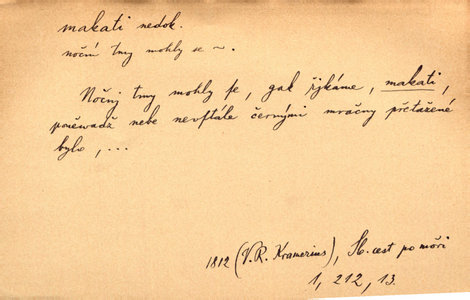 makati nedok.
noční tmy mohly se ~.
Nočnj tmy mohly se, gak řjkáme, makati,
poněwadž nebe neustále černými mračny přetažené
bylo, ...
1812 (V. R. Kramerius), H. cest po moři
1, 212, 13.